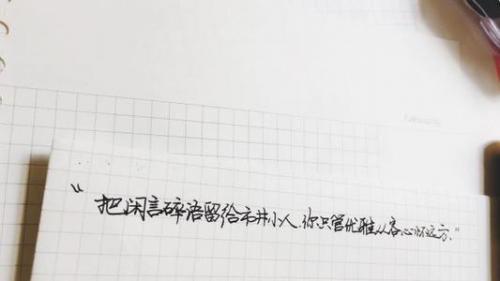 “把闲言碎语留给市井小人,你只管优雅从容心怀远方.”